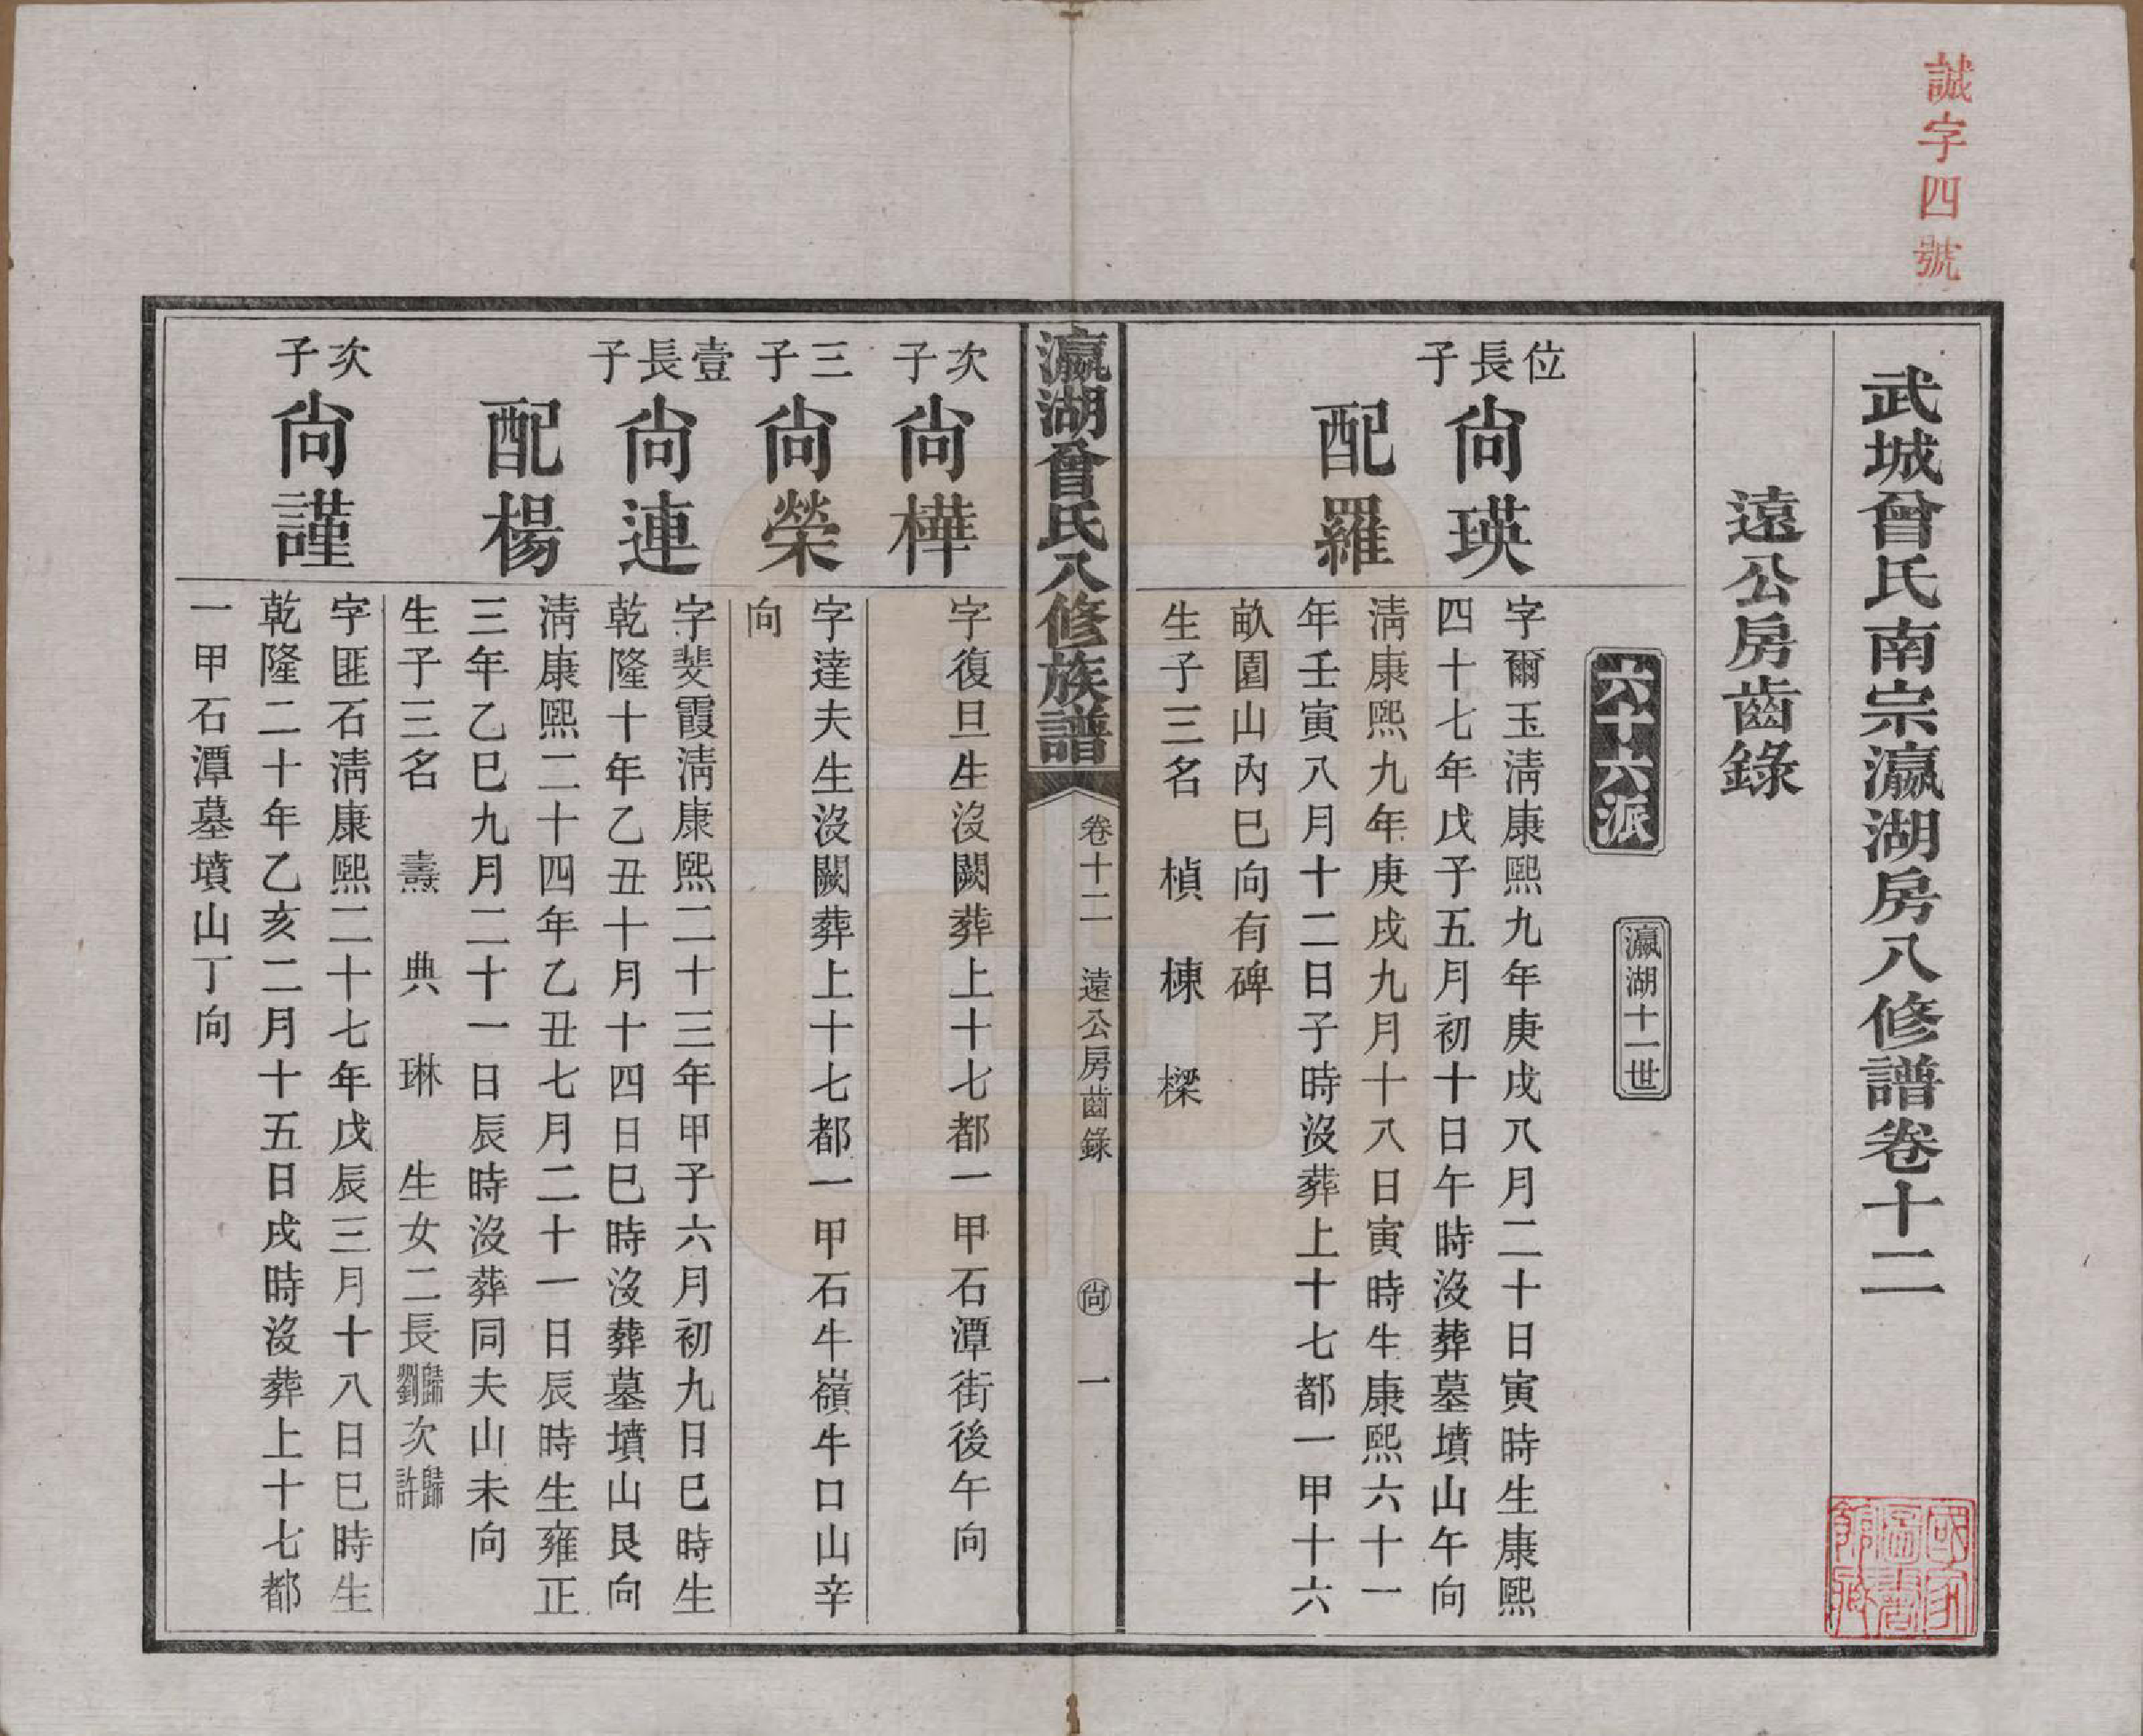 誠字四號
武城曾氏南宗瀛湖房八修譜卷十二
遠公房齒錄
六十六派
瀛湖十一世
位長子
尙瑛
字爾玉淸康熙九年庚戌八月二十日寅時生康熙
四十七年戊子五月初十日午時沒葬墓墳山午向
配羅
淸康熙九年庚戌九月十八日寅時生康熙六十一
年壬寅八月十二日子時沒葬上十七都一甲十六
畝園山內巳向有碑
生子三名 楨 棟 樑
瀛湖曾氏八修族譜
卷十二 遠公房齒錄
尙 一
次子
尙樺
字復旦生沒闕葬上十七都一甲石潭街後午向
三子
尙榮
字達夫生沒闕葬上十七都一甲石牛嶺牛口山辛
向
壹長子
尙連
字斐霞淸康熙二十三年甲子六月初九日巳時生
乾隆十年乙丑十月十四日巳時沒葬墓墳山艮向
配楊
淸康熙二十四年乙丑七月二十一日辰時生雍正
三年乙巳九月二十一日辰時沒葬同夫山未向
生子三名 燾 典 琳 生女二長歸劉次歸許
次子
尙謹
字匪石淸康熙二十七年戊辰三月十八日巳時生
乾隆二十年乙亥二月十五日戌時沒葬上十七都
一甲石潭墓墳山丁向
國家圖書館藏